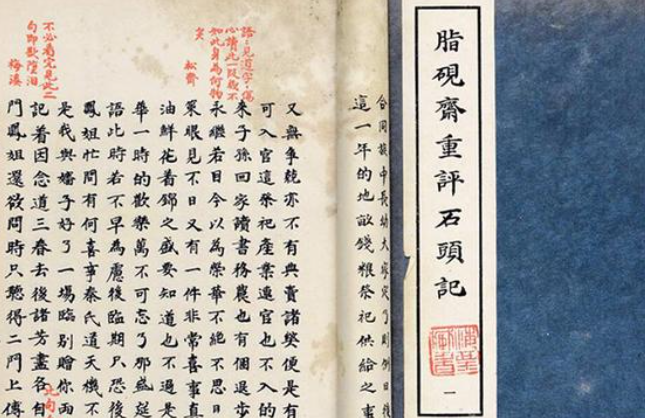 脂硯齋重評石頭記
一
合同族中長幼大家定了則例日後
這一年的地畝錢粮祭祀供给之事
語〻見道字〻傷
心讀此一段幾不
知此身為何物
矣
松齋
又無争競亦不有典賣諸獘便是有
可入官這祭祀產業連官也不入的
來子孫回家讀書務農也有個退步
永繼若目今以為榮華不絕不思日
策眼見不日又有一件非常喜事真
油鮮花着錦之盛要知道也不過是
華一時的歡樂萬不可忘了那盛筵
語此時若不早為慮後臨期只恐後
鳳姐忙問有何喜事秦氏道天機不
是我與嬸子好了一場臨别贈你両
不必看完見此二
句即欲墮淚
梅溪
記着因念道三春去後諸芳盡各自
門鳳姐還欲問時只聽得二門上傳